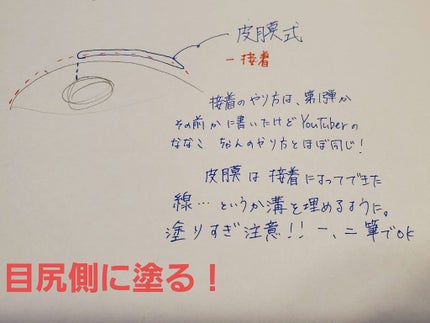 皮膜式
ー接着
接着のやり方は、第1弾か
その前かに書いたけどYouTuberの
ななこ ちゃんのやり方とほぼ同じ!
皮膜は接着によってできた
線…というか溝を埋めるように。
塗りすぎ注意!!一、二筆でOK
目尻側に塗る!